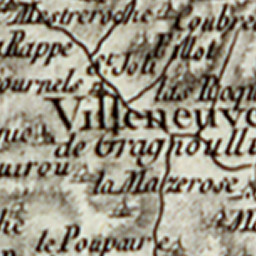 Mestreroche
Coubre
Rappe
Fillot
St Joli
ournels
las Roqu
Villeneuve
de Gragnoull
uirou
la Malzerose
le Poupaire